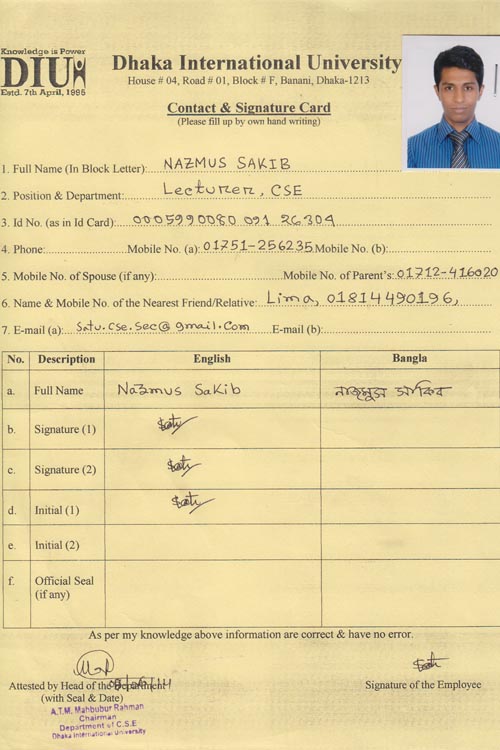 Knowledge is Power
DIU
Estd. 7th April, 1995
Dhaka International University
House # 04, Road # 01, Block # F, Banani, Dhaka-1213
Contact & Signature Card
(Please fill up by own hand writing)
1. Full Name (In Block Letter): NAZMUS SAKIB
2. Position & Department: Lecturer, CSE
3. Id No. (as in Id Card): 0005990080 091 26304
4. Phone: Mobile No. (a): 01751-256235 Mobile No. (b):
5. Mobile No. of Spouse (if any): Mobile No. of Parent's: 01712-416020
6. Name & Mobile No. of the Nearest Friend/Relative: Lima, 01814490196,
7. E-mail (a): Satu.cse.sec@gmail.com E-mail (b):
No. Description English Bangla
a. Full Name Nazmus Sakib নাজমুস সাকিব
b. Signature (1)
c. Signature (2)
d. Initial (1)
e. Initial (2)
f. Official Seal
(if any)
As per my knowledge above information are correct & have no error.
Attested by Head of the Department
(with Seal & Date)
Signature of the Employee
A.T.M. Mahbubur Rahman
Chairman
Department of C.S.E
Dhaka International University